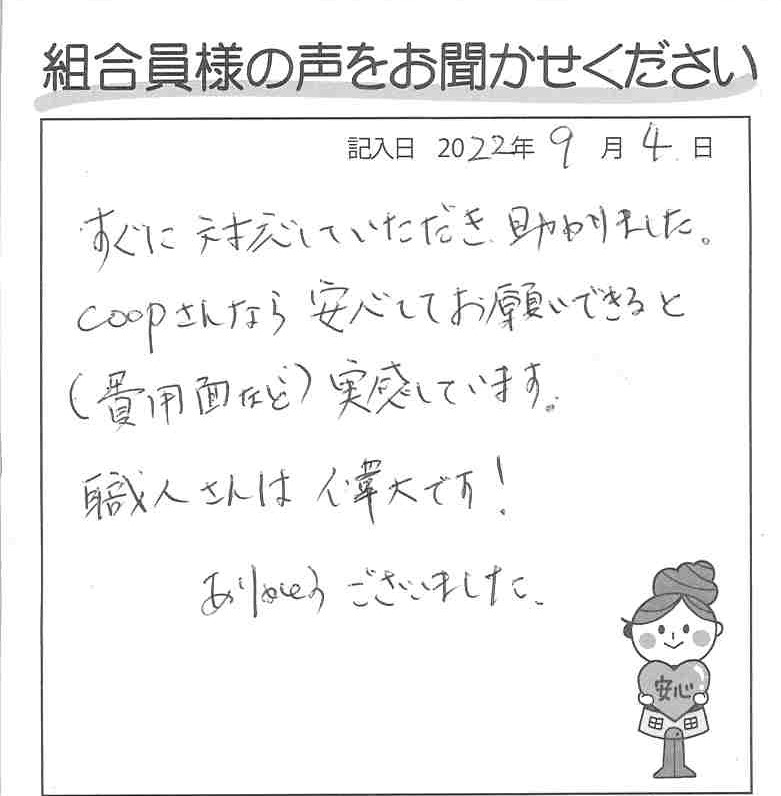 組合員様の声をお聞かせください
記入日 2022年 9月 4日
すぐに対応していただき助かりました。
coopさんなら安心してお願いできると
(費用面など)実感しています。
職人さんは偉大です!
ありがとうございました。
安心